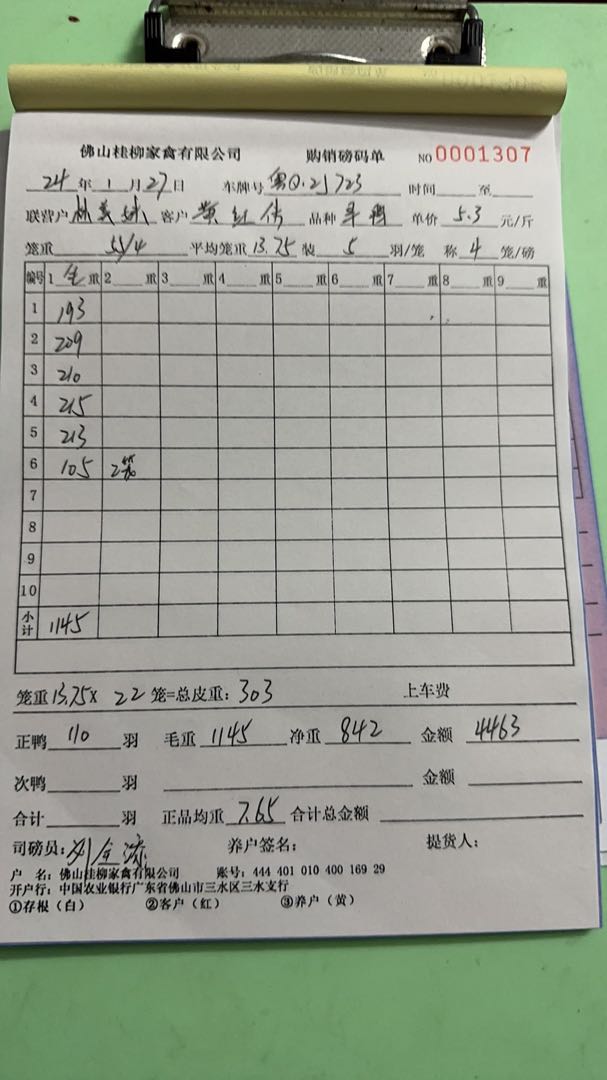 佛山桂柳家禽有限公司 购销磅码单 NO 0001307
24 年 1 月 27 日 车牌号 粤Q.25723 时间 至
联营户 林 客户 黄红伟 品种 单价 5.3 元/斤
笼重 55/4 平均笼重 13.75 装 5 羽/笼 称 4 笼/磅
编号 1 重 2 重 3 重 4 重 5 重 6 重 7 重 8 重 9 重
1 193
2 209
3 210
4 215
5 213
6 105 2笼
7
8
9
10
小计 1145
笼重 13.75x 22 笼=总皮重: 303 上车费
正鸭 110 羽 毛重 1145 净重 842 金额 4463
次鸭 羽 金额
合计 羽 正品均重 7.65 合计总金额
司磅员: 刘金 养户签名: 提货人:
户 名: 佛山桂柳家禽有限公司 账号: 444 401 010 400 169 29
开户行: 中国农业银行广东省佛山市三水区三水支行
①存根(白) ②客户(红) ③养户(黄)